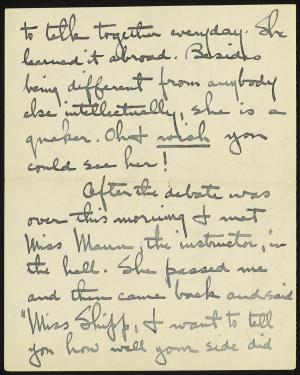 to talk together everyday. She
learned it abroad. Besides
being different from anybody
else intellectually, she is a
quaker. Oh I wish you
could see her!
After the debate was
over this morning I met
Miss Mann, the instructor, in
the hall. She passed me
and then came back and said
"Miss Shipp, I want to tell
you how well your side did